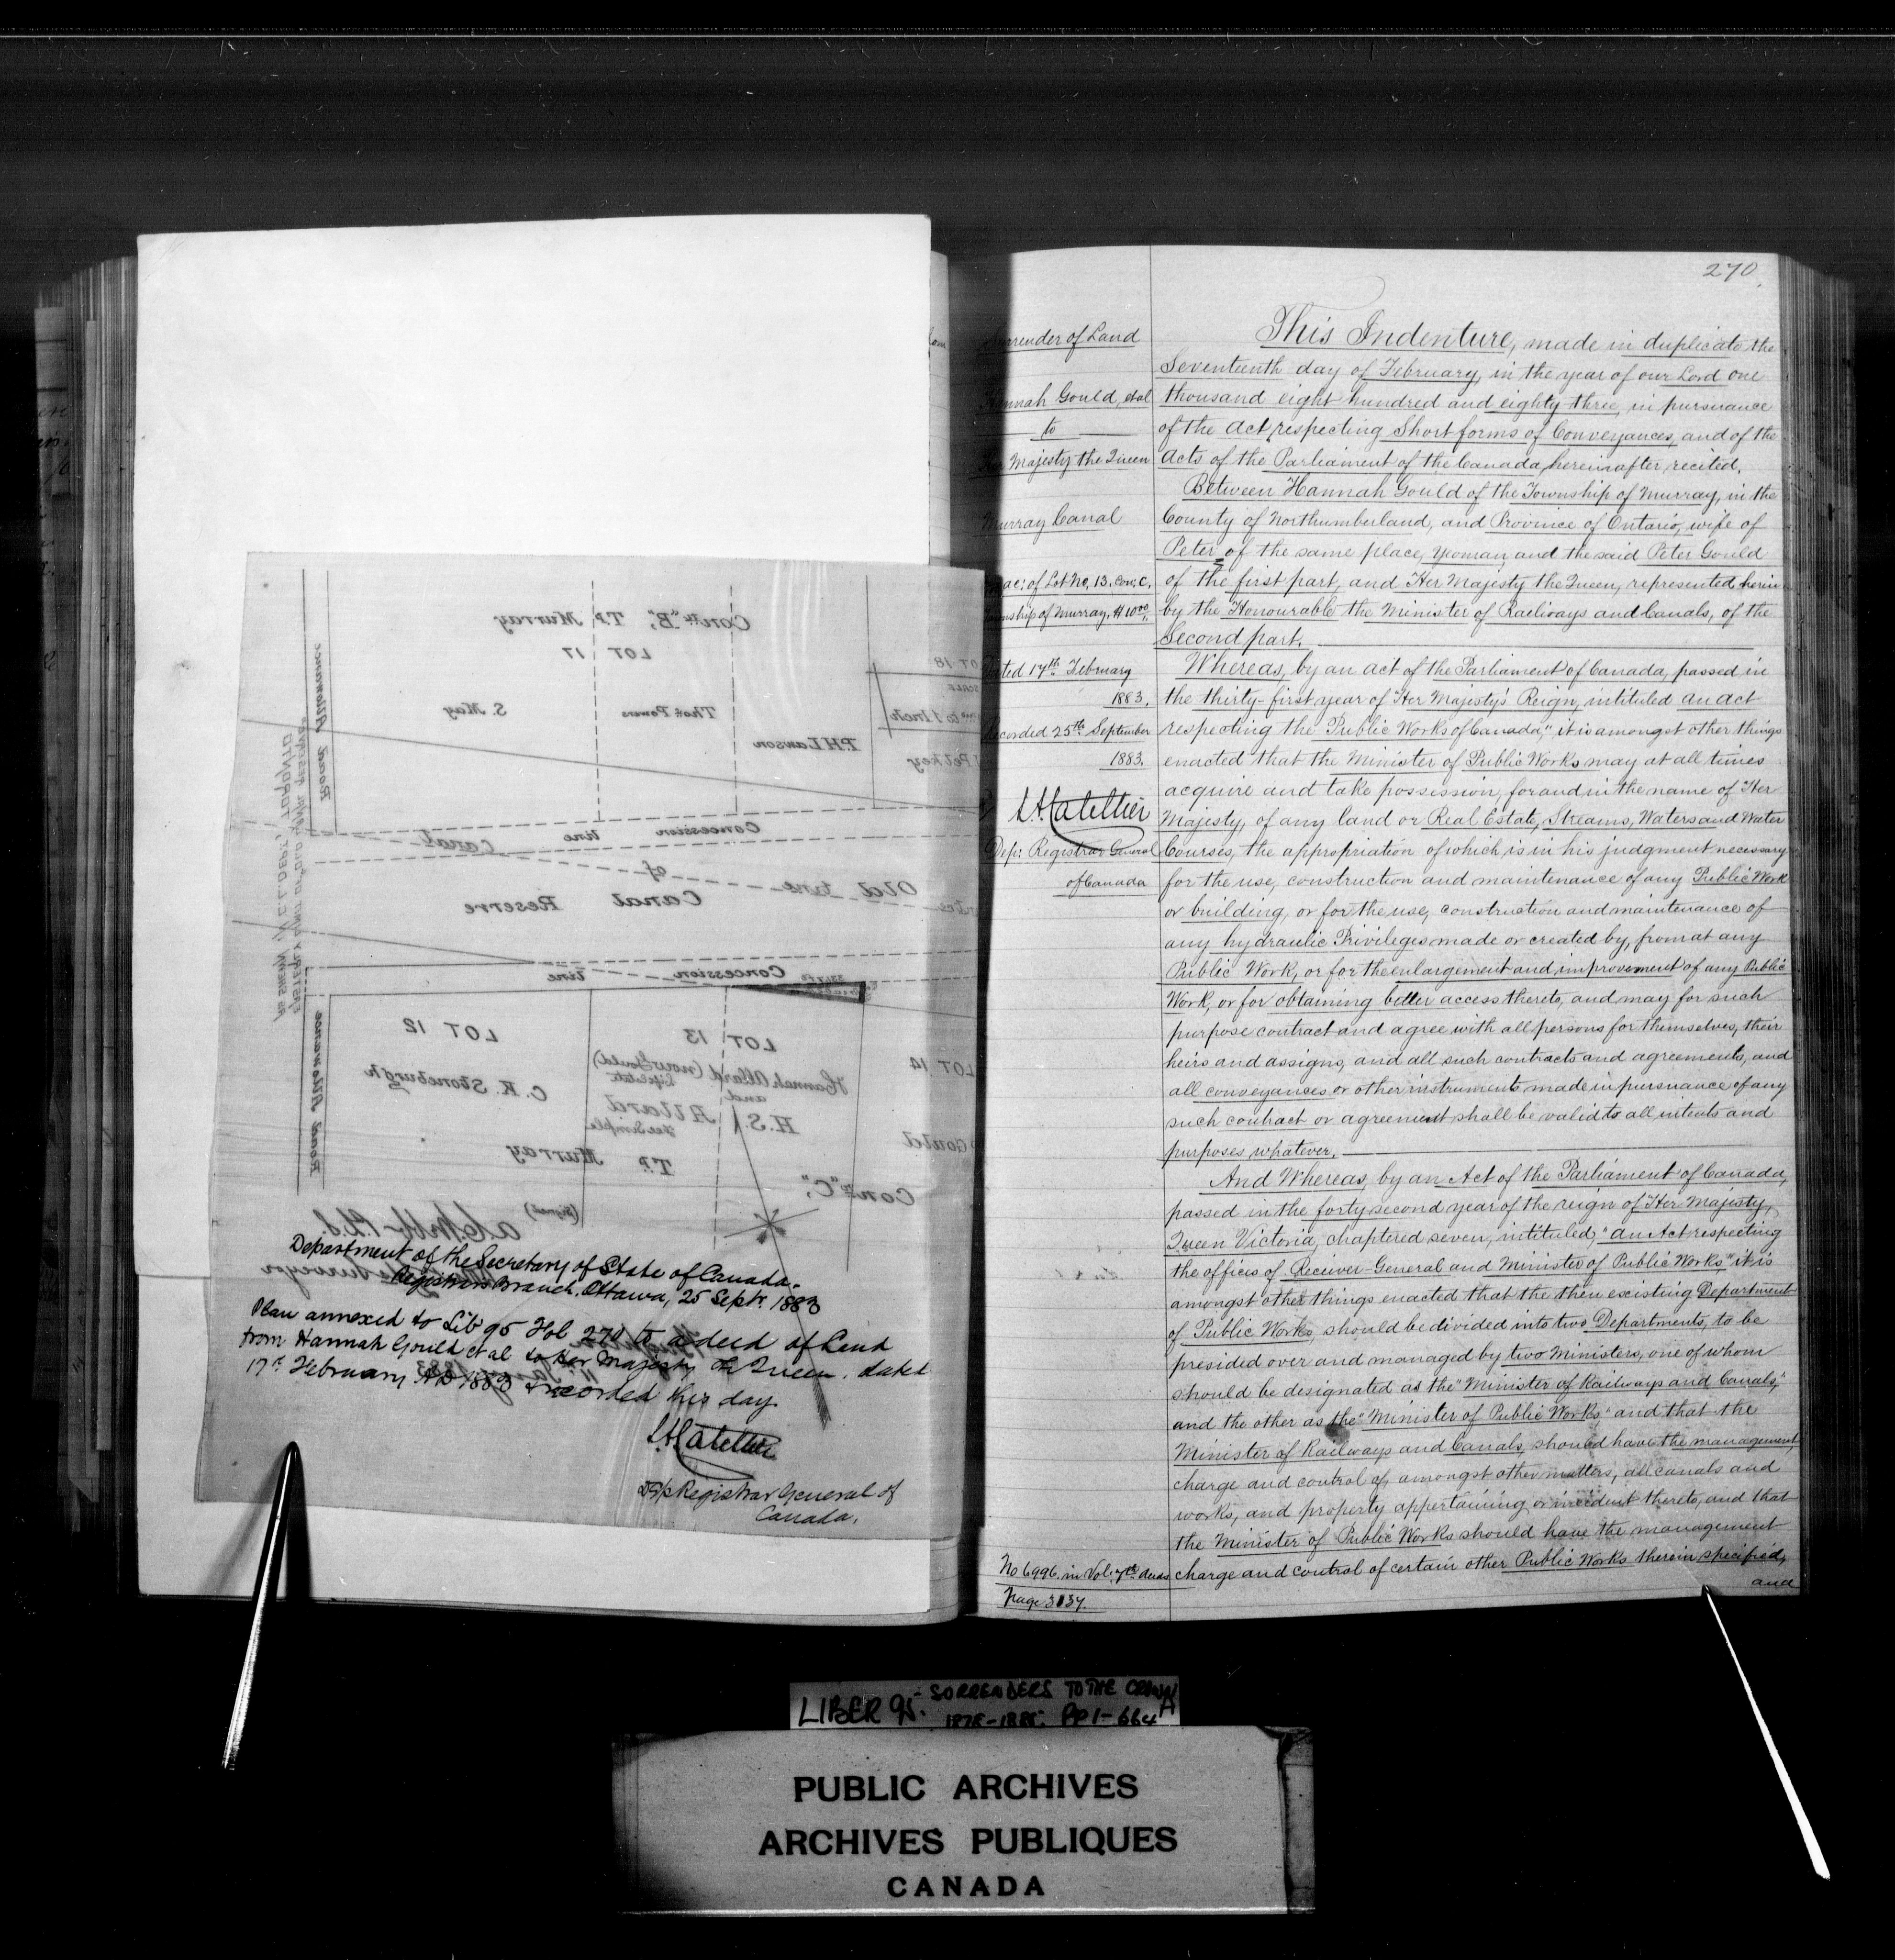 Con.n "B", Tp. Murray
LOT 17
LOT 18
SCALE
to 1 Inch
Road Allowance
S. May
Thos Powers
P.H. Lawson
Concession line
Old line of Canal
Canal Reserve
Concession line
Road Allowance
LOT 12
LOT 13
LOT 14
C. K. Stoneburgh
Hannah Allard (now Gould)
Life Estate
and
H.S. Allard
Fee Simple
Gould
Tp. Murray
Con.n "C",
(signed)
Department of the Secretary of State of Canada.
Registrars Branch. Ottawa, 25 Septr. 1883
Plan annexed to Lib 95 Fol 270 to a deed of Land
from Hannah Gould et al to Her Majesty the Queen. dated
17th February AD 1883 & recorded this day.
L.A. Catellier
Dep Registrar General of
Canada.
270
Surrender of Land
Hannah Gould, et al
to
Her Majesty the Queen
Murray Canal
ac: of Lot No. 13. Con; C.
Township of Murray. $10.00
Dated 17th February
1883.
Recorded 25th September
1883.
L.A. Catellier
Dep: Registrar General
of Canada
No 6996. in Vol. 7th deeds
Page 3137.
This Indenture, made in duplicate the
Seventeenth day of February, in the year of our Lord one
thousand eight hundred and eighty-three, in pursuance
of the Act respecting Short forms of Conveyances, and of the
Acts of the Parliament of the Canada, hereinafter, recited.
Between Hannah Gould of the Township of Murray, in the
County of Northumberland, and Province of Ontario, wife of
Peter of the same place, yeoman, and the said Peter Gould
of the first part, and Her Majesty the Queen, represented herein
by the Honourable the Minister of Railways and Canals, of the
Second part.
Whereas, by an act of the Parliament of Canada, passed in
the thirty-first year of Her Majesty's Reign, intituled An Act
respecting the Public Works of Canada," it is amongst other things
enacted that the Minister of Public Works may at all times
acquire and take possession, for and in the name of Her
Majesty, of any land or Real Estate, Streams, Waters and Water
Courses, the appropriation of which is in his judgment necessary
for the use, construction and maintenance of any Public Work
or building, or for the use, construction and maintenance of
any hydraulic Privileges made or created by, from at any
Public Work, or for the enlargement and improvement of any Public
Work, or for obtaining better access thereto, and may for such
purpose contract and agree with all persons for themselves, their
heirs and assigns, and all such contracts and agreements, and
all conveyances or other instruments made in pursuance of any
such contract or agreement shall be valid to all intents and
purposes whatever.
And Whereas, by an Act of the Parliament of Canada,
passed in the forty second year of the reign of Her Majesty,
Queen Victoria, chaptered seven, intituled, "An Act respecting
the offices of Receiver-General and Minister of Public Works," it is
amongst other things enacted that the then existing Department
of Public Works, should be divided into two Departments, to be
presided over and managed by two Ministers, one of whom
should be designated as the "Minister of Railways and Canals,"
and the other as the "Minister of Public Works" and that the
Minister of Railways and Canals, should have the management,
charge and control of, amongst other matters, all canals and
works, and property appertaining or incident thereto, and that
the Minister of Public Works should have the management
charge and control of certain other Public Works therein specified,
and
LIBER 95. SURRENDERS TO THE CROWN
1878-1885. PP 1-664
PUBLIC ARCHIVES
ARCHIVES PUBLIQUES
CANADA